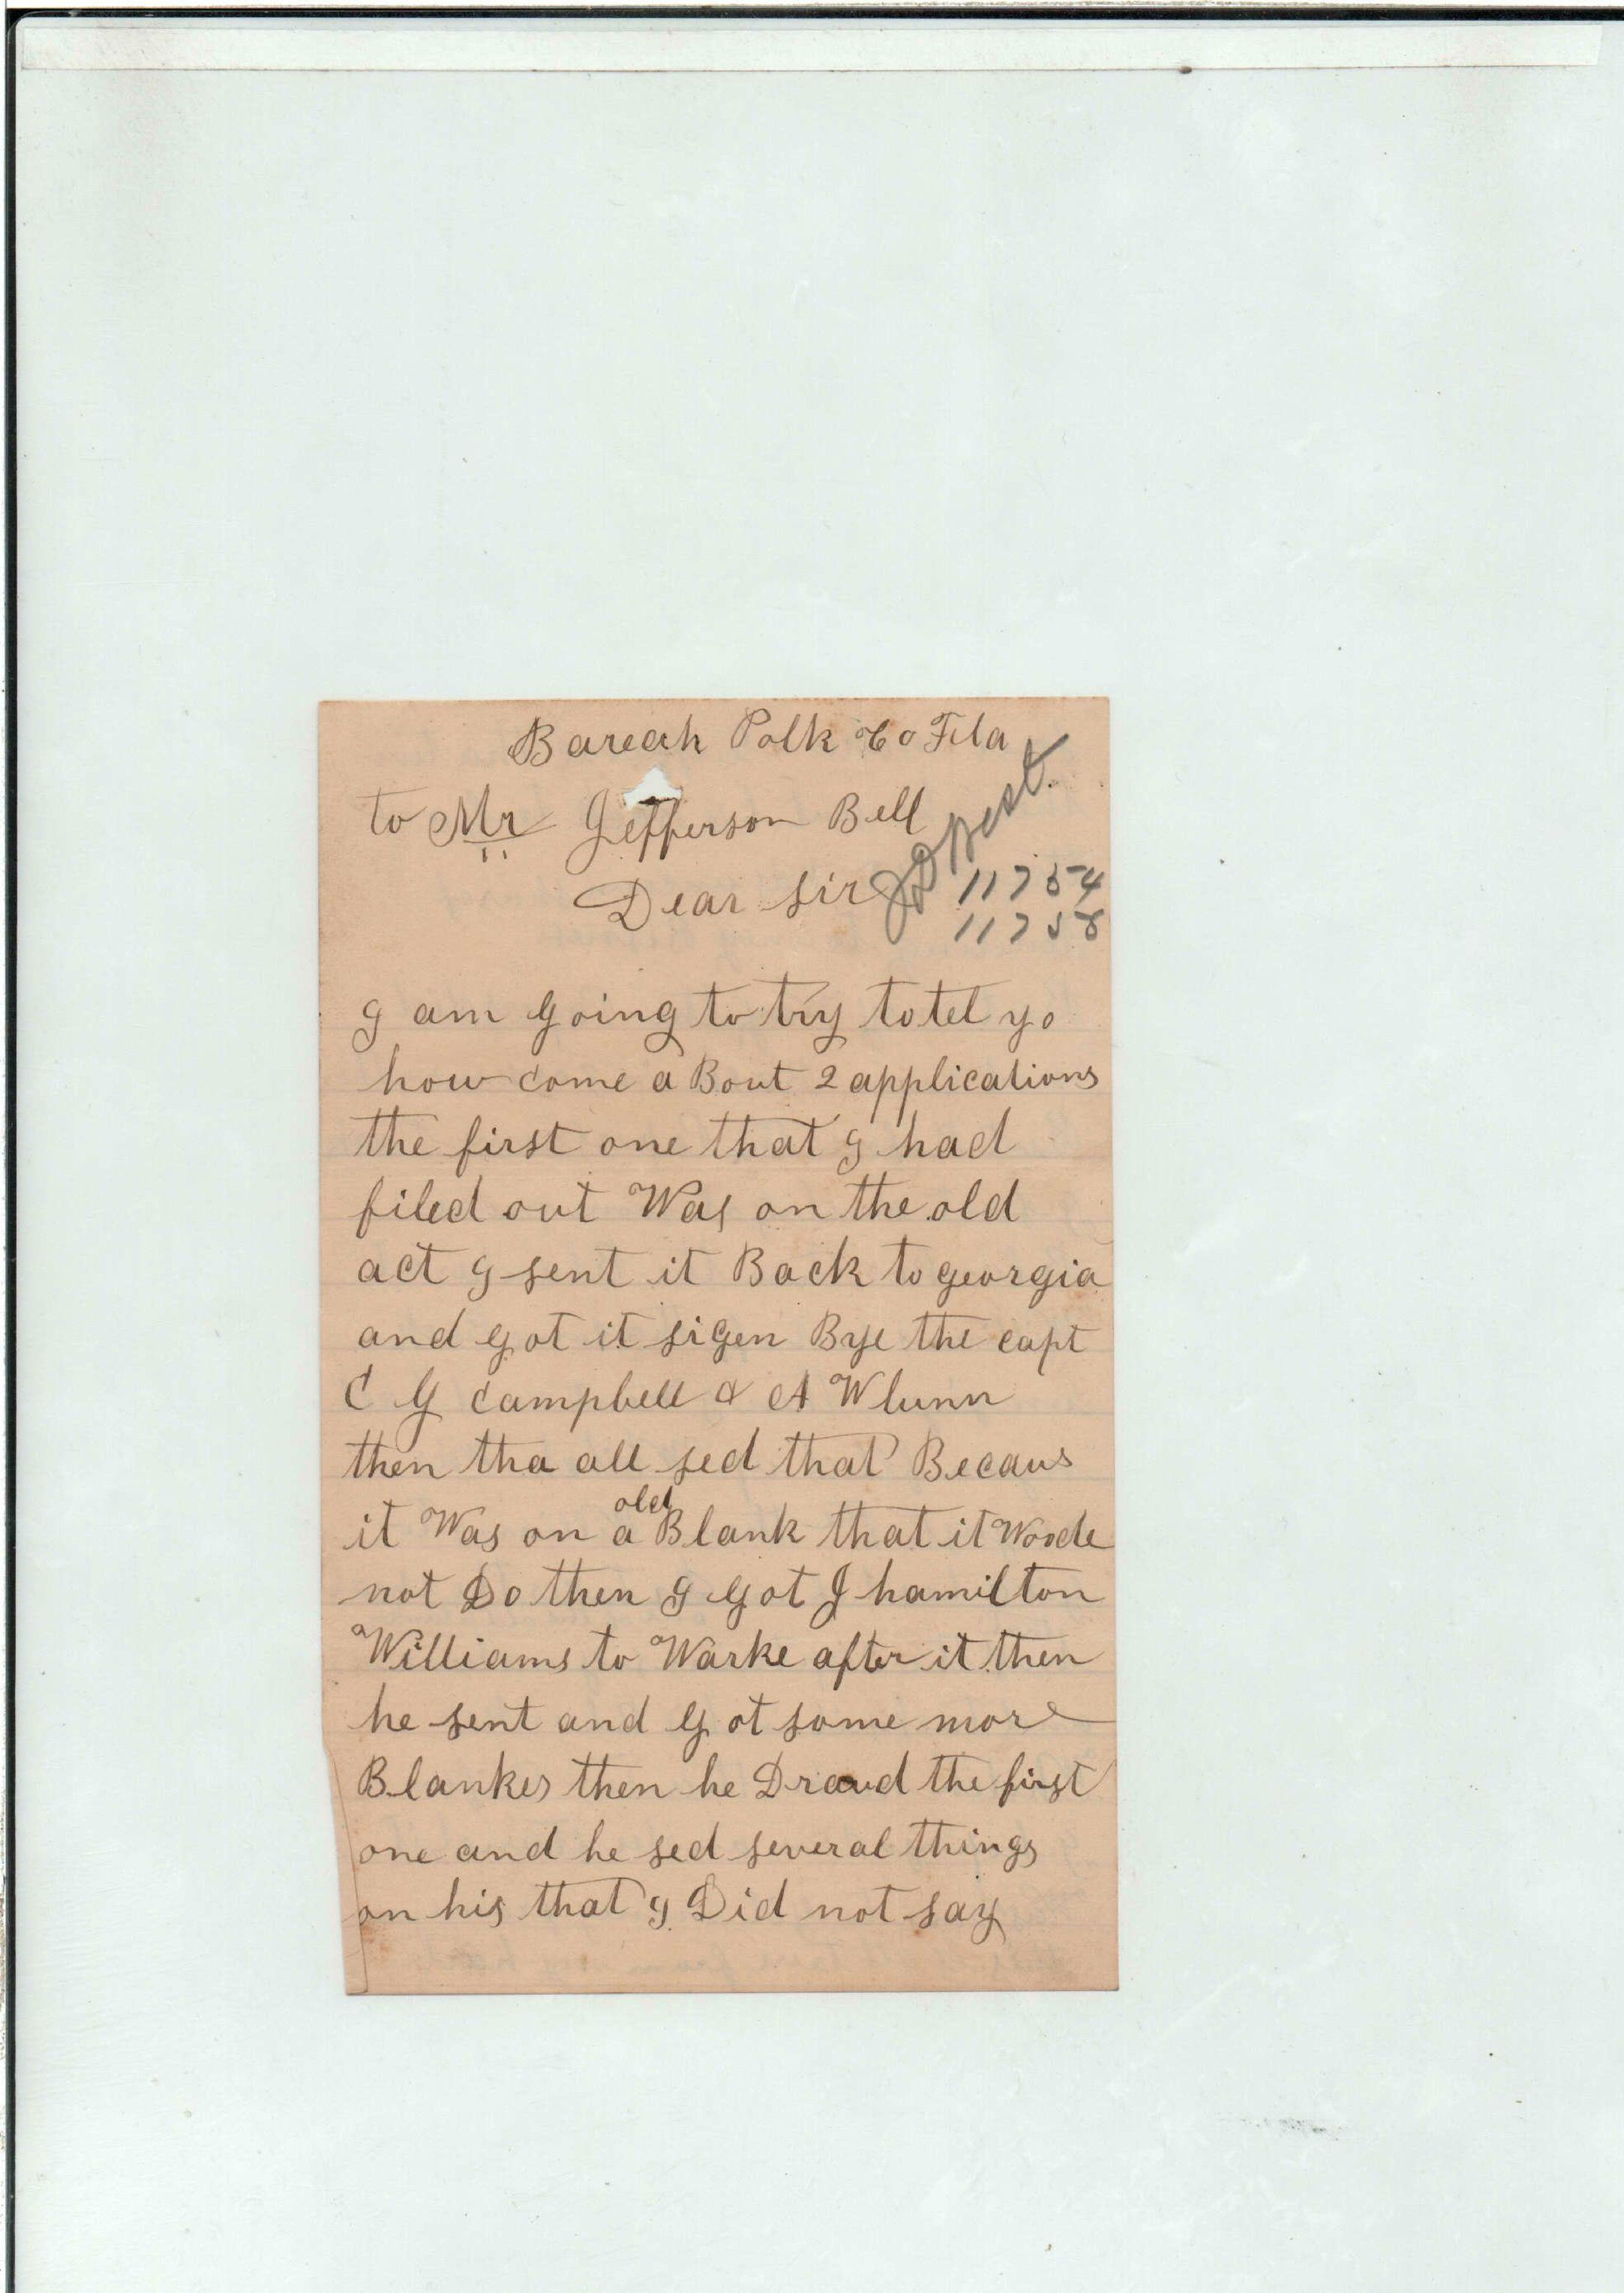 Bareah Polk Co Fla
to Mr Jefferson Bell
Dear Sir
11754
11758
I am going to try to tel yo
how come a Bout 2 applications
the first one that I had
filed out Was on the old
act I sent it Back to georgia
and got it sigen Bye the capt
C G Campbell & A W lunn
then tha all sed that Becaus
it Was on a old Blank that it Woode
not Do then I Got J hamilton
Williams to Warke after it then
he sent and Got some more
Blankes then he Draud the first
one and he sed several things
on his that I Did not say